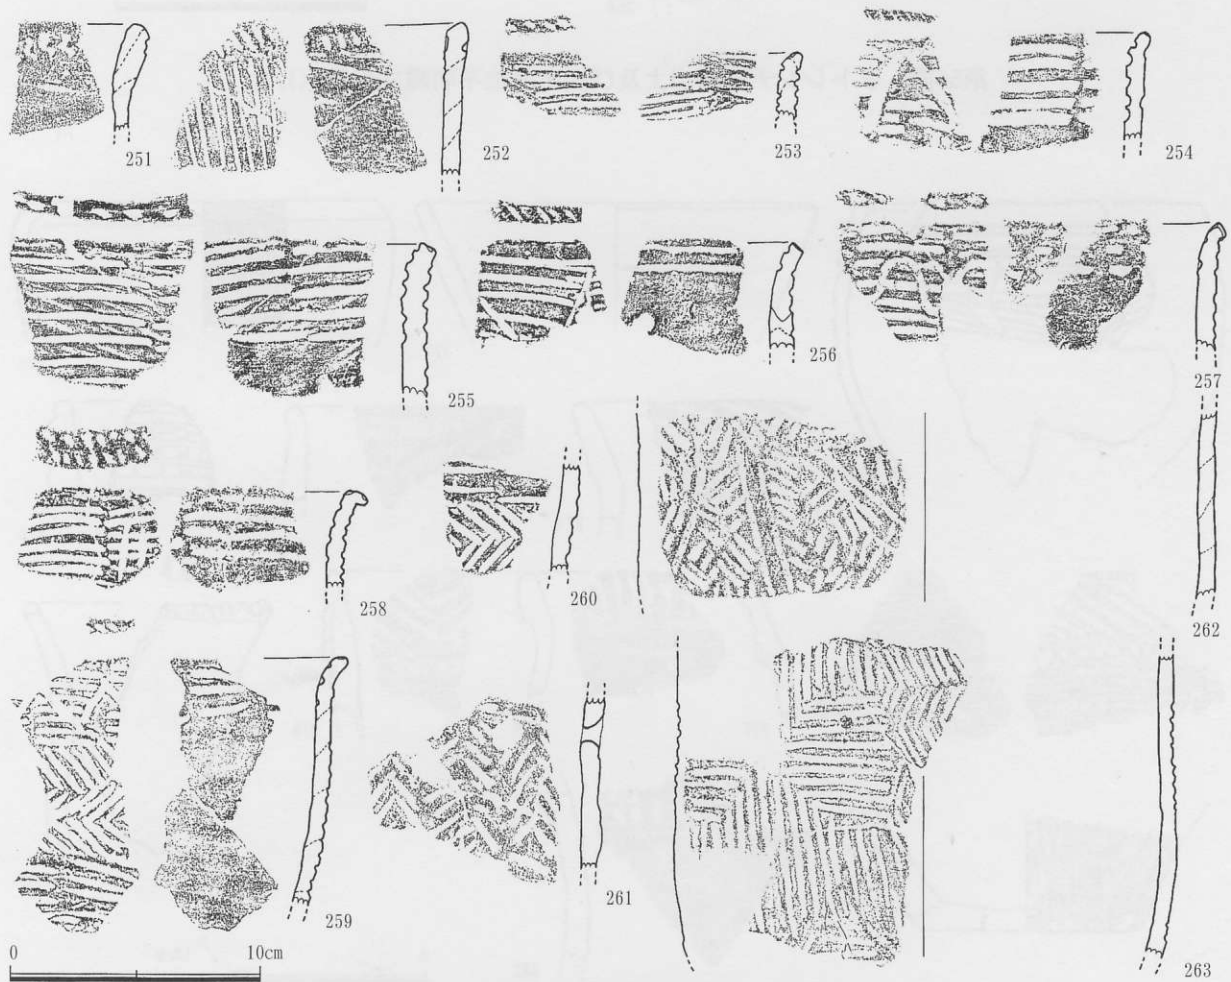 251
252
253
254
255
256
257
258
259
260
261
262
263
0
10cm